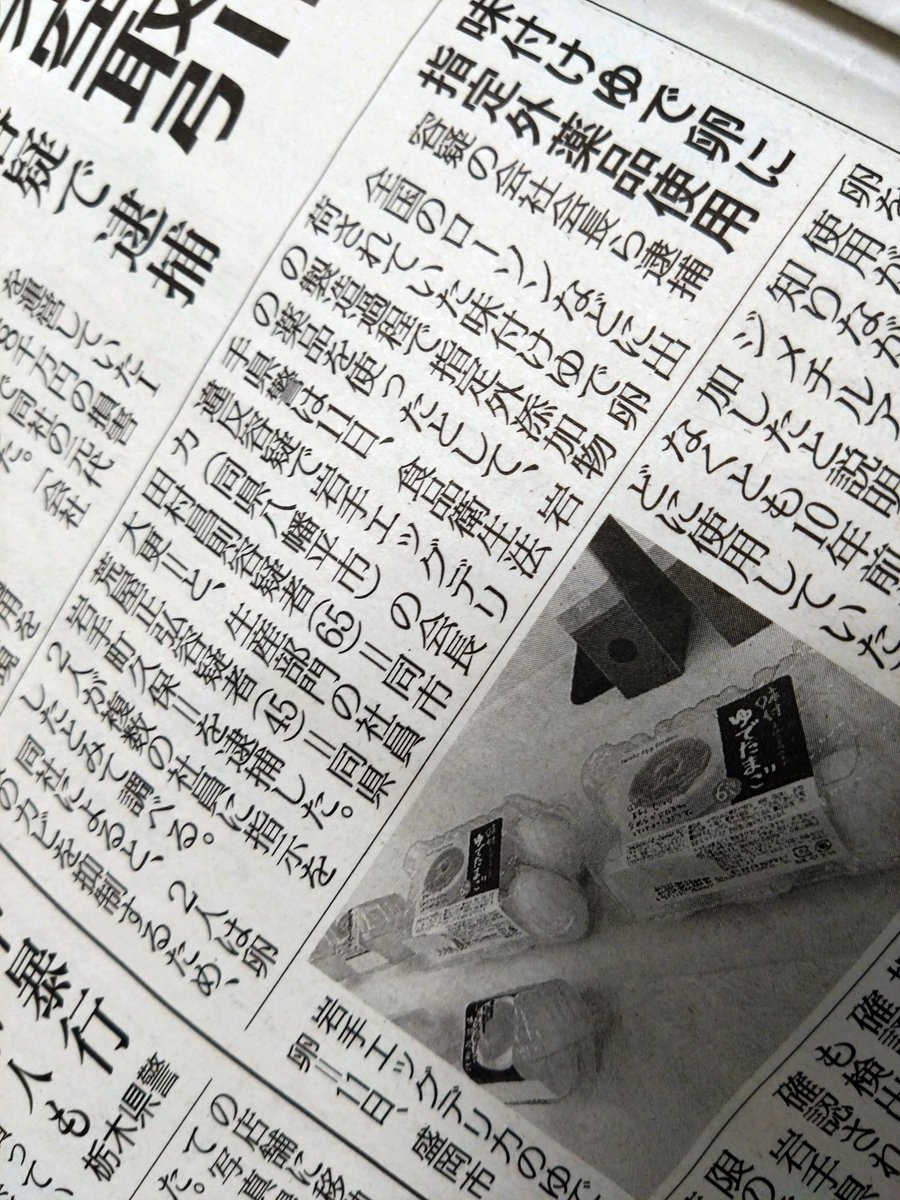 味付けゆで卵に
指定外薬品使用
容疑の会社会長ら逮捕
全国のローソンなどに出
荷されていた味付けゆで卵
の製造過程で指定外添加物
の薬品を使ったとして、岩
手県警は11日、食品衛生法
違反容疑で岩手エッグデリ
カ(同県八幡平市)の会長
田村昌則容疑者(65)=同市
大更=と、生産部門の社員
荒屋正弘容疑者(45)=同県
岩手町久保=を逮捕した。
2人が複数の社員に指示を
したとみて調べる。
同社によると、2人は卵
のカビを抑制するため、
卵を
使用が
知りなが
ジメチルア
加したと説明
なくとも10年前
どに使用していた
味付
ゆでたまご
味付
ゆでたまご
岩手エッグデリカのゆで
卵=11日、盛岡市
空取引
容疑で逮捕
を運営していた
で同社の元代
た。「会社
暴行
人も
栃木県警
の店舗に移動
て写真
た。
確認
も検出
確認され
岩手県
限の